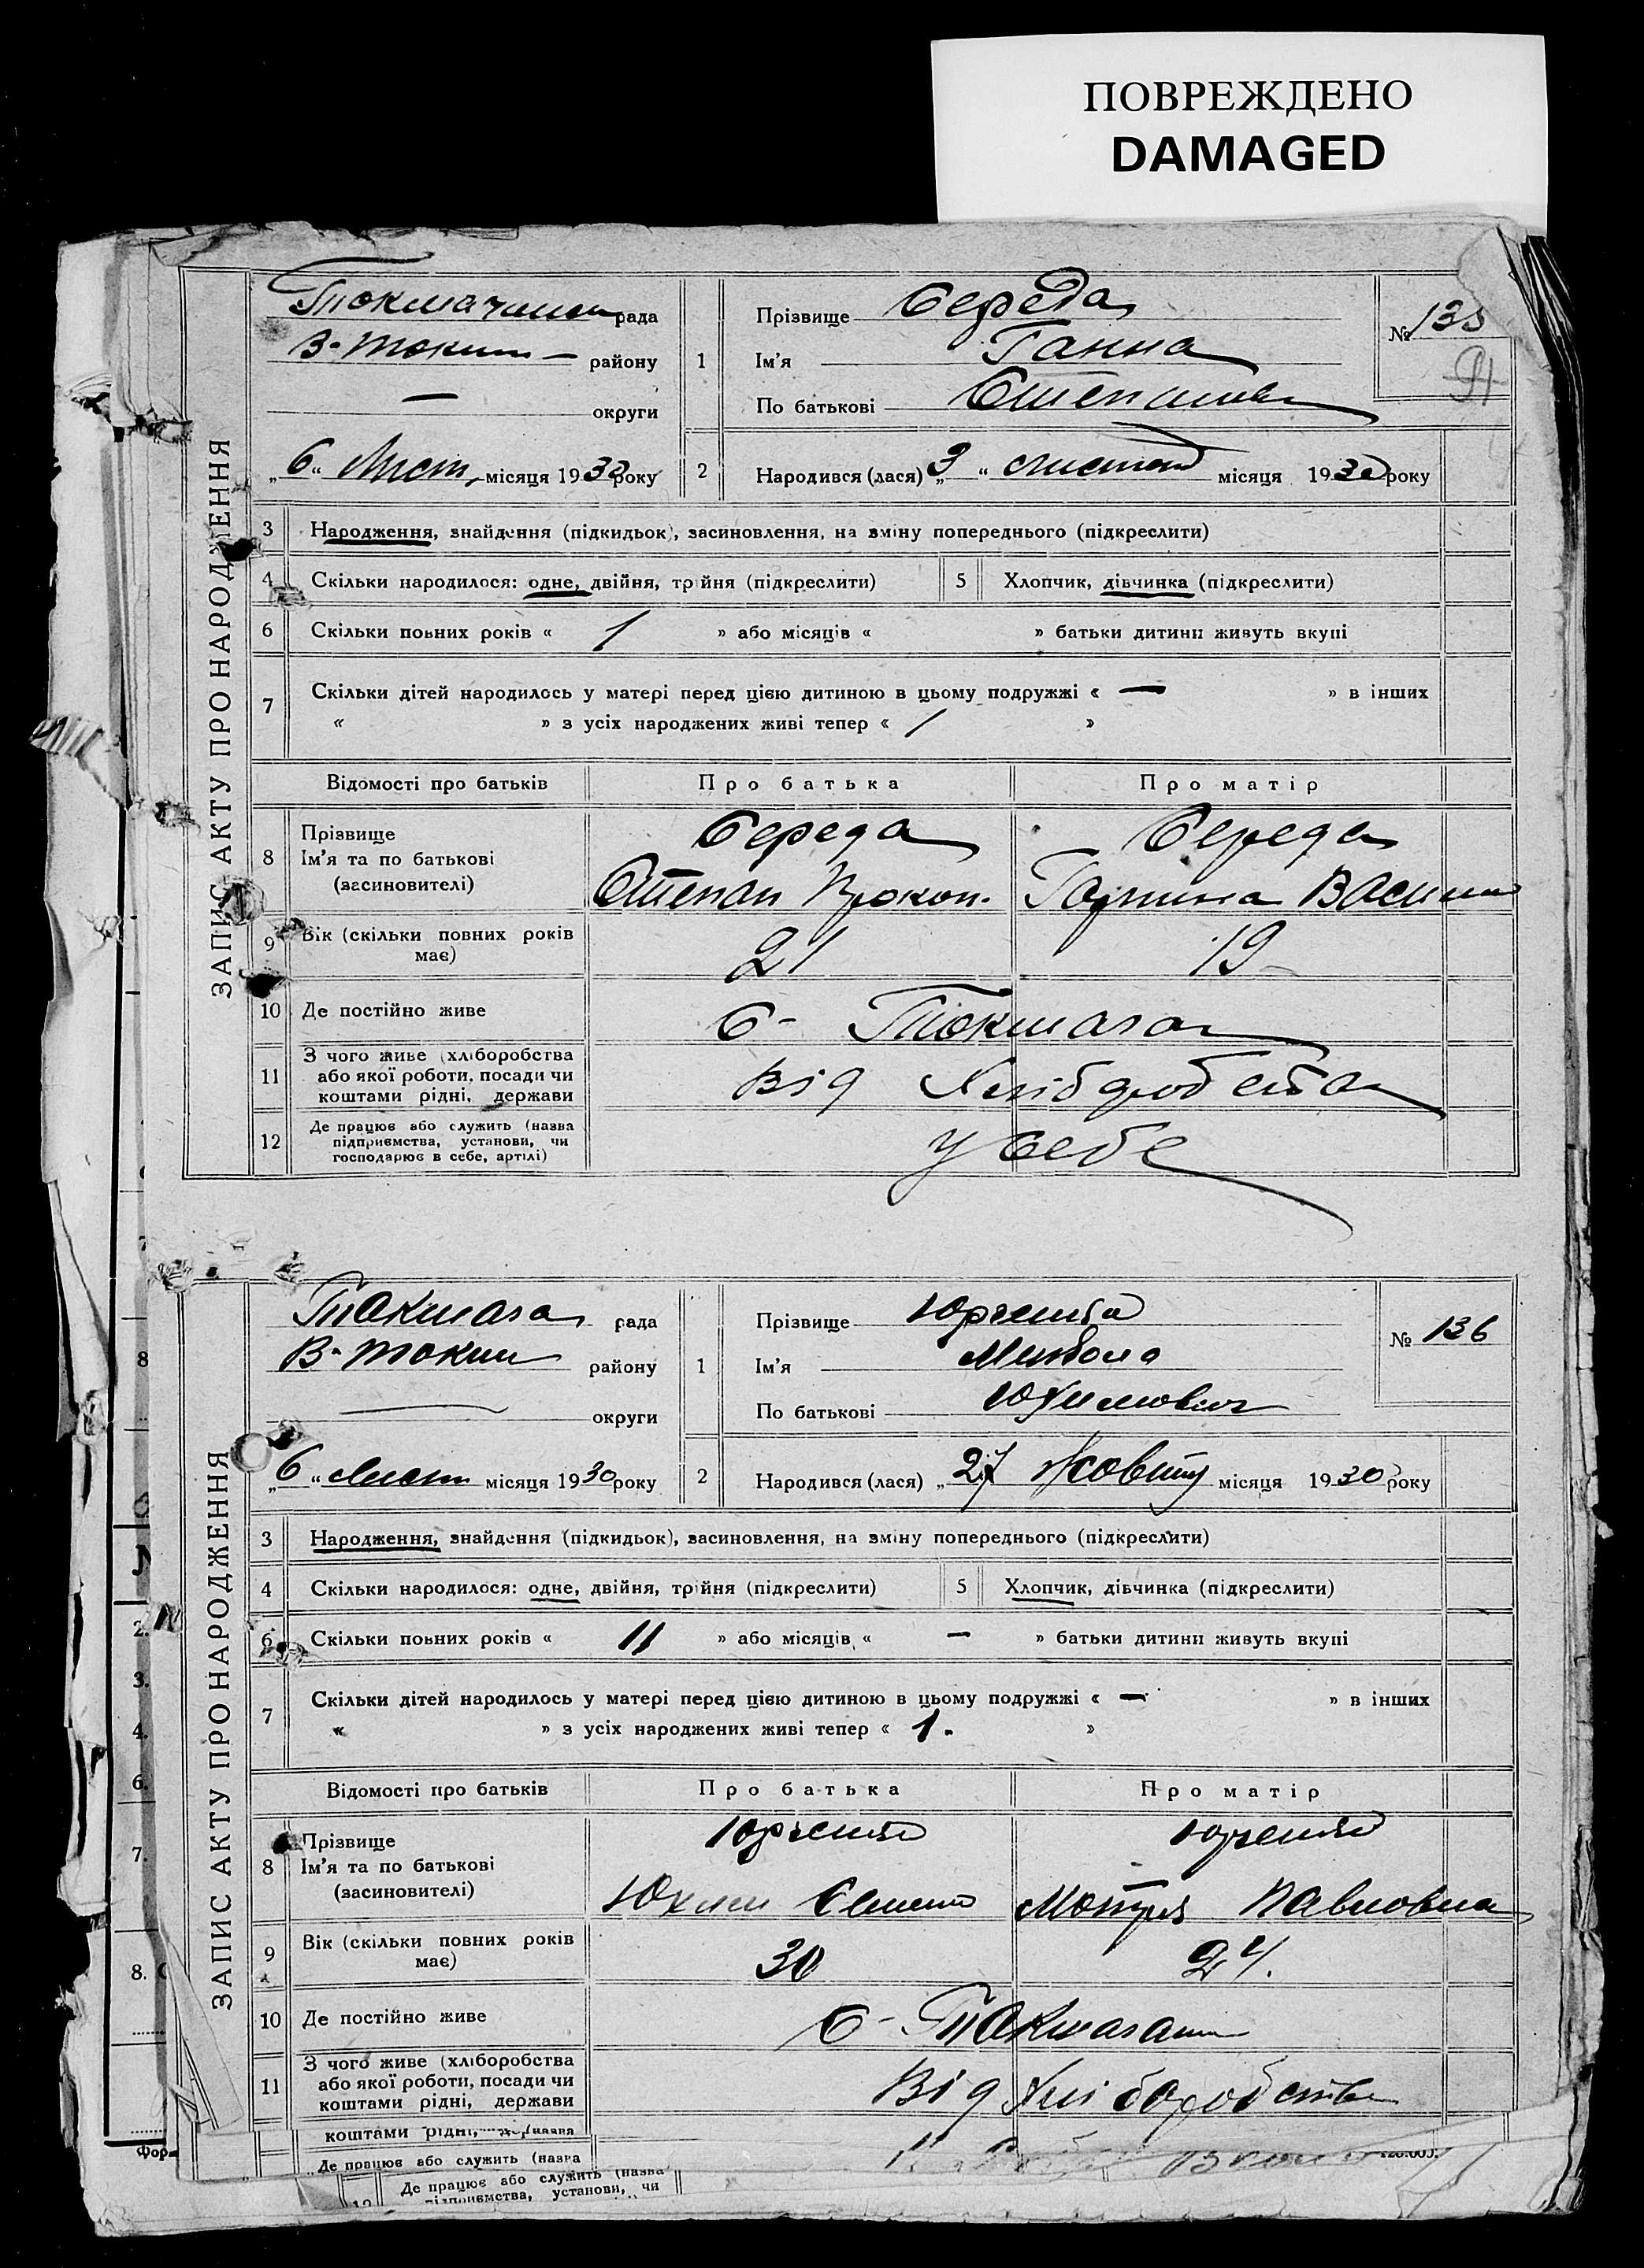 ПОВРЕЖДЕНО
DAMAGED
ЗАПИС АКТУ ПРО НАРОДЖЕННЯ
рада
В-Токм району
— округи
„6“ Лист. місяця 1930 року
1
Прізвище Середа
Ім'я Ганна
По батькові Степановна
№ 135
2
Народився (лася) „3“ листопад місяця 1930 року
3 Народження, знайдення (підкидьок), засиновлення, на зміну попереднього (підкреслити)
4 Скільки народилося: одне, двійня, трійня (підкреслити) 5 Хлопчик, дівчинка (підкреслити)
6 Скільки повних років « 1 » або місяців « » батьки дитини живуть вкупі
7 Скільки дітей народилось у матері перед цією дитиною в цьому подружжі « — » в інших
« » з усіх народжених живі тепер « 1 »
Відомості про батьків Про батька Про матір
8 Прізвище Ім'я та по батькові (засиновителі)
Середа Середа
Степан Прокоп. Горпина Васил
9 Вік (скільки повних років має) 21 19
10 Де постійно живе С- Токмачка
11 З чого живе (хліборобства або якої роботи, посади чи коштами рідні, держави
Від Хліборобства
12 Де працює або служить (назва підприємства, установи, чи господарює в себе, артілі)
у себе
ЗАПИС АКТУ ПРО НАРОДЖЕННЯ
рада
В-Токм району
— округи
„6“ Лист місяця 1930 року
1
Прізвище Юрченко
Ім'я Микола
По батькові Юхимович
№ 136
2
Народився (лася) „27 Жовтн місяця 1930 року
3 Народження, знайдення (підкидьок), засиновлення, на зміну попереднього (підкреслити)
4 Скільки народилося: одне, двійня, трійня (підкреслити) 5 Хлопчик, дівчинка (підкреслити)
6 Скільки повних років « 11 » або місяців « — » батьки дитини живуть вкупі
7 Скільки дітей народилось у матері перед цією дитиною в цьому подружжі « — » в інших
« » з усіх народжених живі тепер « 1. »
Відомості про батьків Про батька Про матір
8 Прізвище Ім'я та по батькові (засиновителі)
Юрченко Юрченко
Юхим Семено Мотря Павловна
9 Вік (скільки повних років має) 30 24.
10 Де постійно живе С- Токмачка
11 З чого живе (хліборобства або якої роботи, посади чи коштами рідні, держави
Від Хліборобства
коштами рідні,
Де працює або служить (назва
Де працює або служить (назва
підприємства, установи, чи